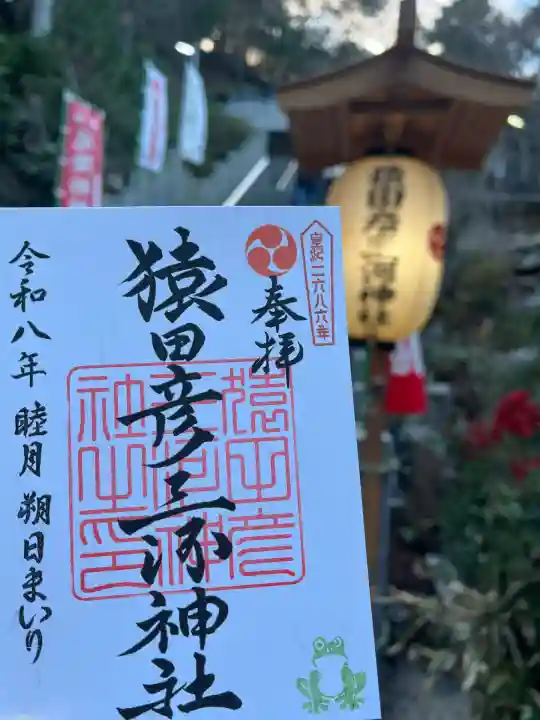 皇紀二六八六年
奉拝
猿田彦三河神社
猿田彦三河神社之印
令和八年 睦月 朔日まいり
猿田彦三河神社